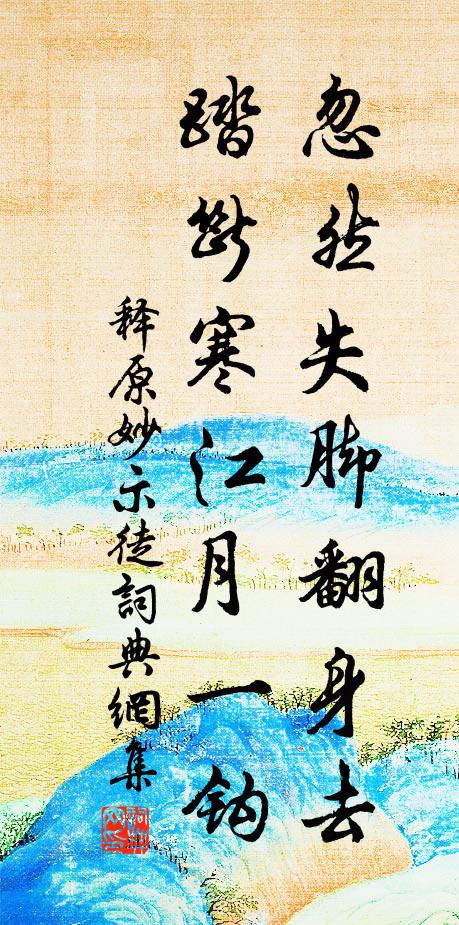 忽然失脚翻身去
踏断寒江月一钩
释原妙示徒詞典網集